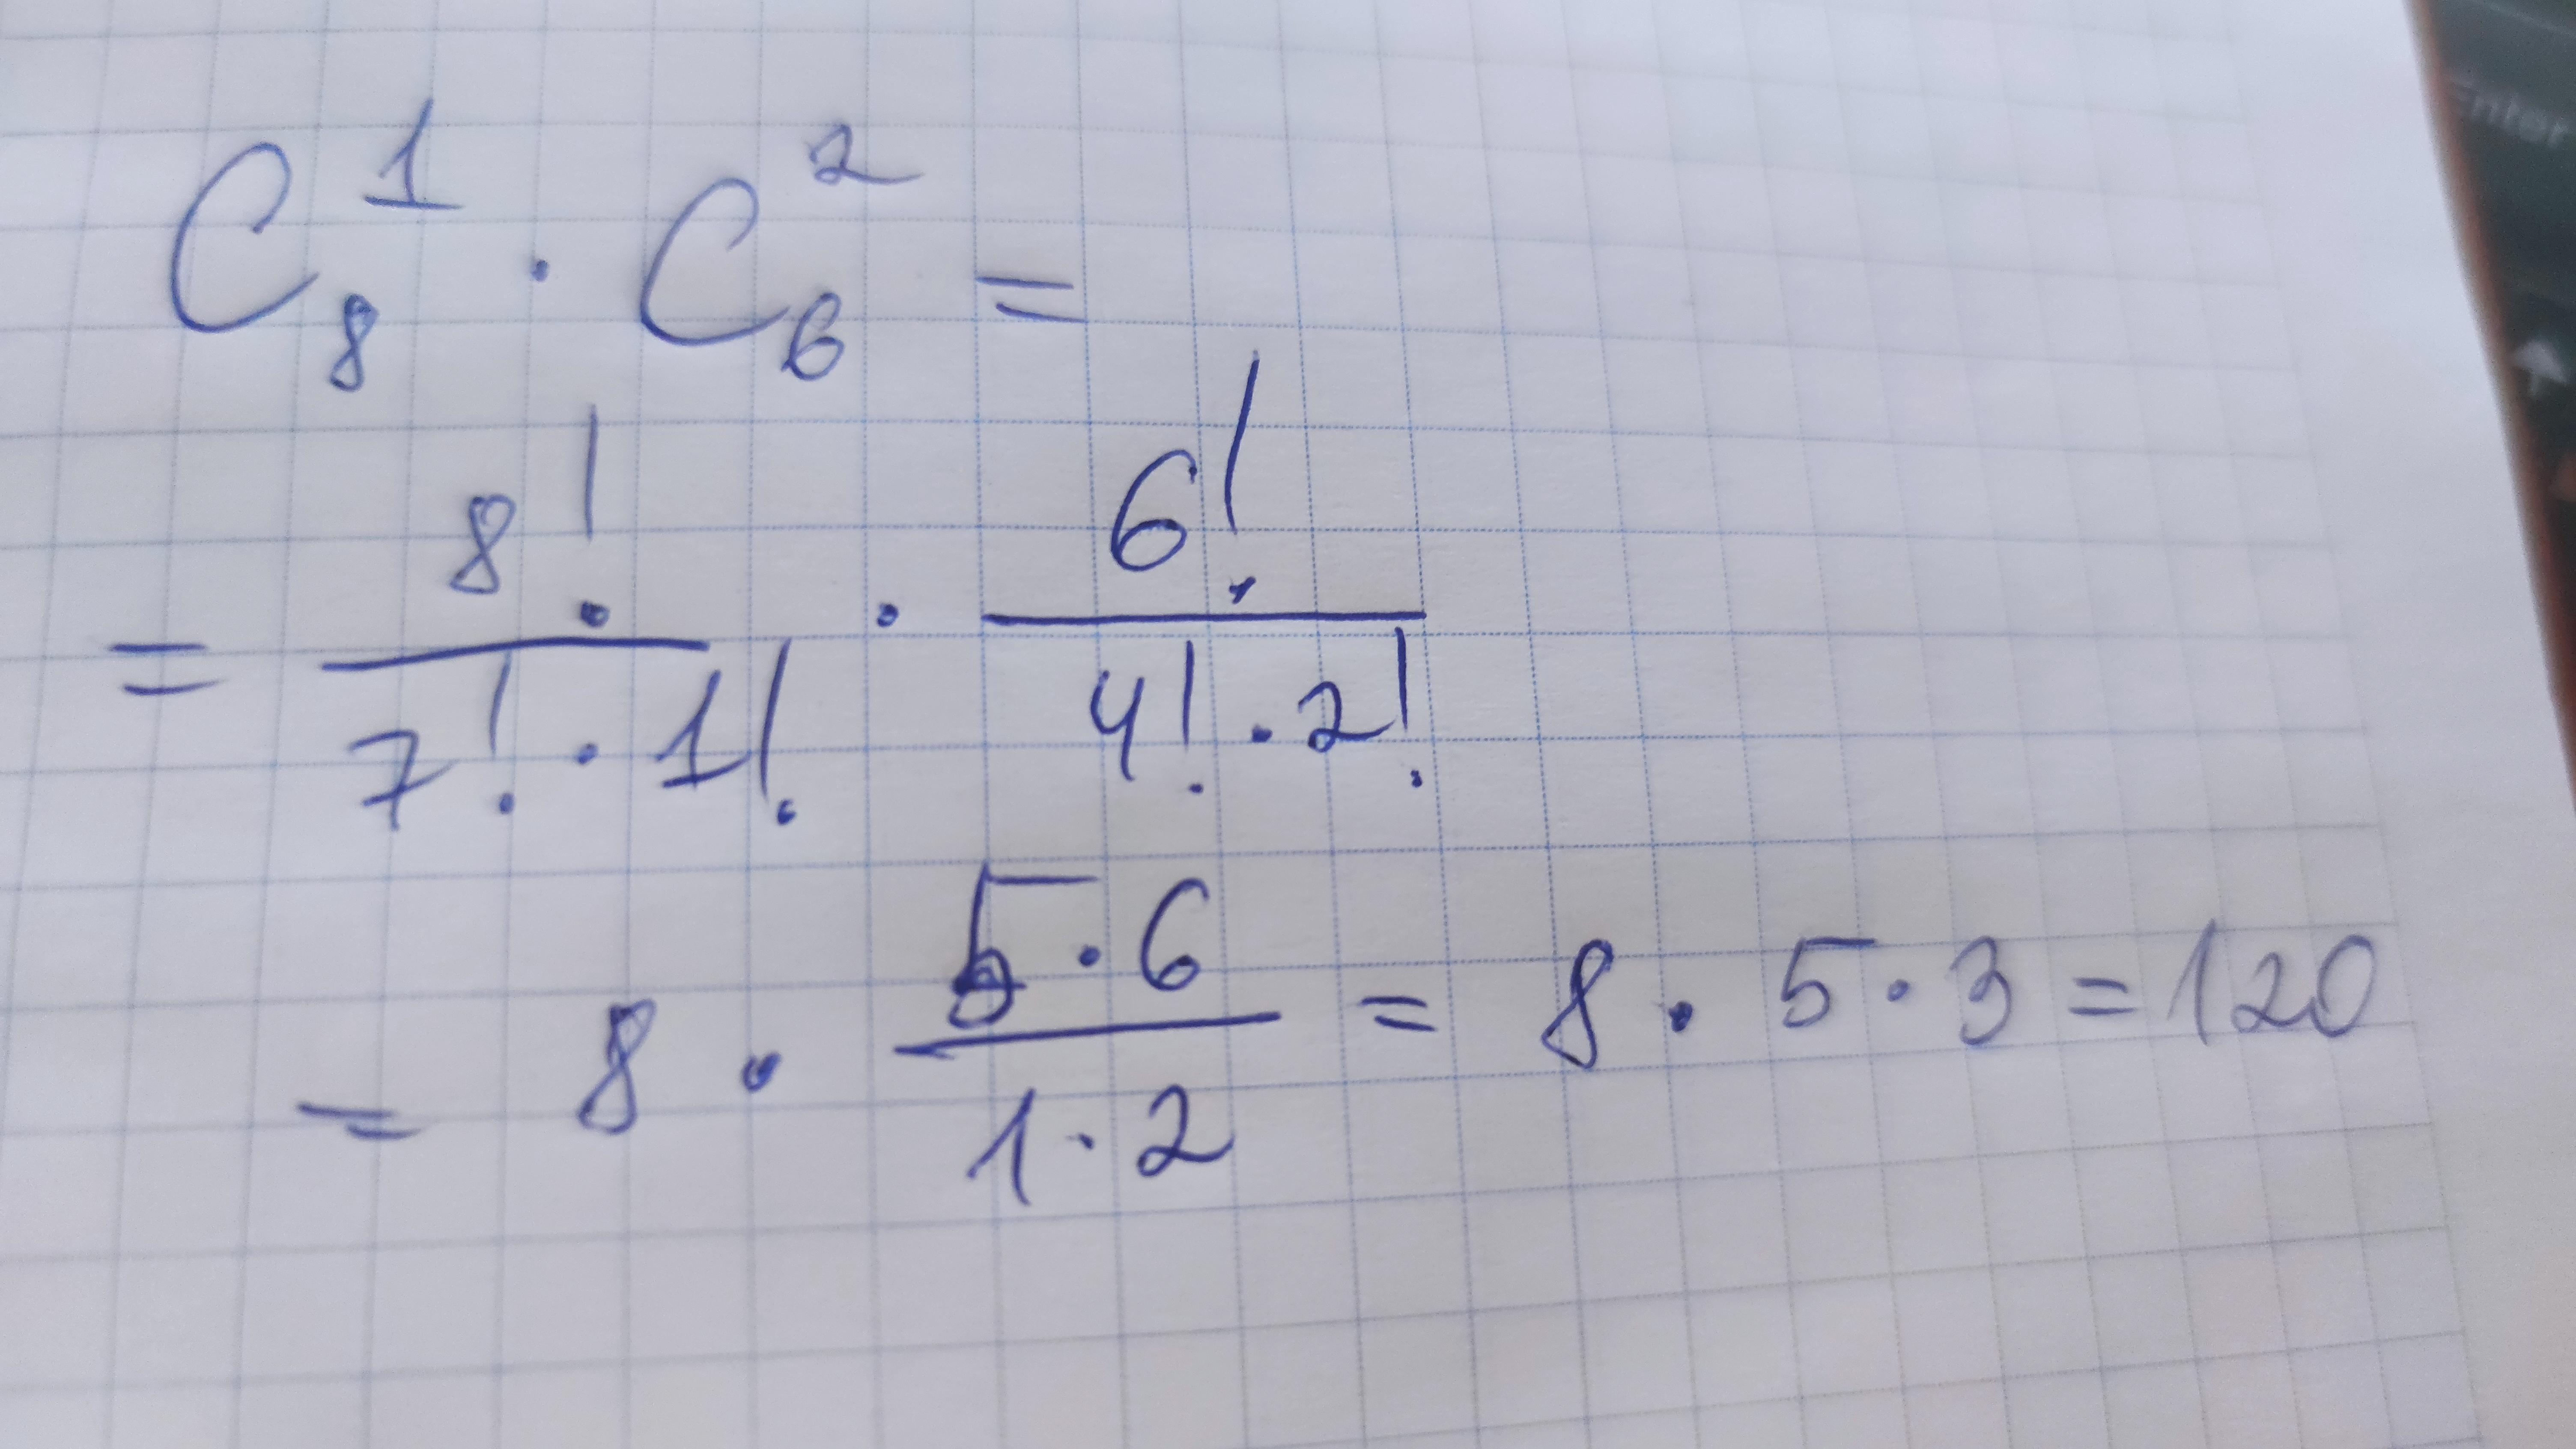 C₈¹ · C₆² =
= 8! / 7! · 1! · 6! / 4! · 2!
= 8 · 5 · 6 / 1 · 2 = 8 · 5 · 3 = 120
Enter